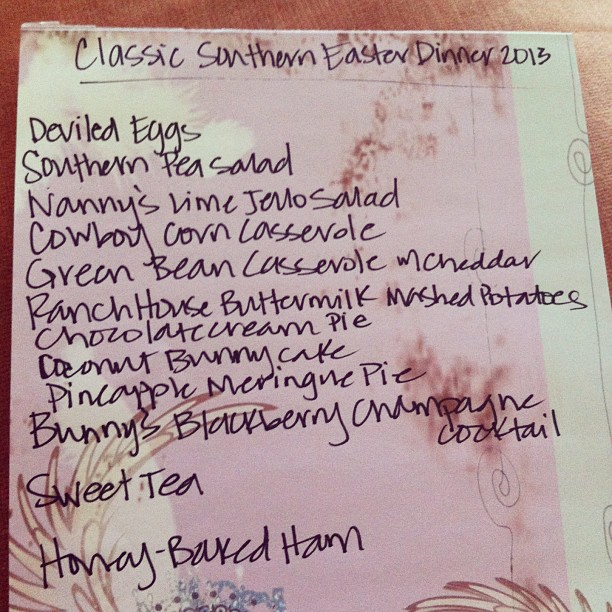 Classic Southern Easter Dinner 2013
Deviled Eggs
Southern Pea Salad
Nanny's Lime Jello Salad
Cowboy Corn Casserole
Green Bean Casserole w Cheddar
Ranch House Buttermilk Mashed Potatoes
Chocolate cream Pie
Coconut Bunny cake
Pineapple Meringue Pie
Bunny's Blackberry Champagne
cocktail
Sweet Tea
Honey-Baked Ham